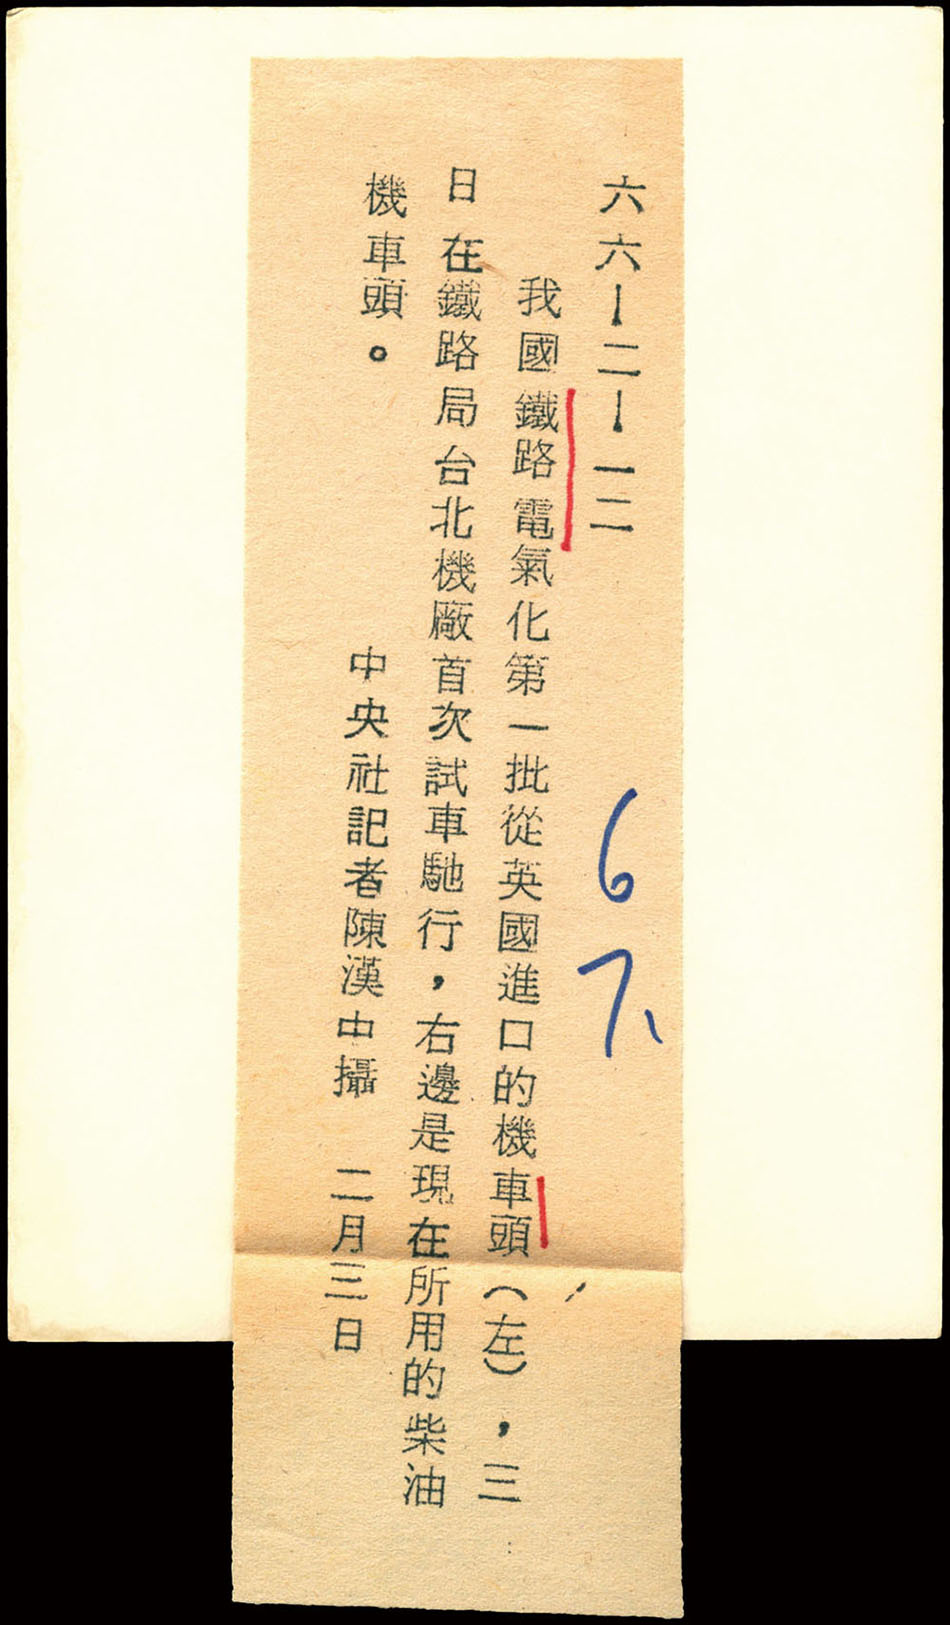 六六－二－一二
我國鐵路電氣化第一批從英國進口的機車頭（左），三
日在鐵路局台北機廠首次試車馳行，右邊是現在所用的柴油
機車頭。
中央社記者陳漢中攝　二月三日
6
7